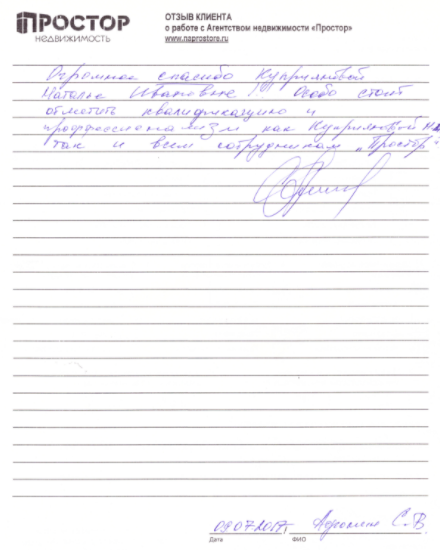 ПРОСТОР
НЕДВИЖИМОСТЬ
ОТЗЫВ КЛИЕНТА
о работе с Агентством недвижимости «Простор»
www.naprostore.ru
Огромное спасибо Куприяновой
Наталье Ивановне! Особо стоит
отметить квалификацию и
профессионализм как Куприяновой Н.И.
так и всем сотрудникам „Простор"
09.07.2017г.
С.В.
Дата
ФИО